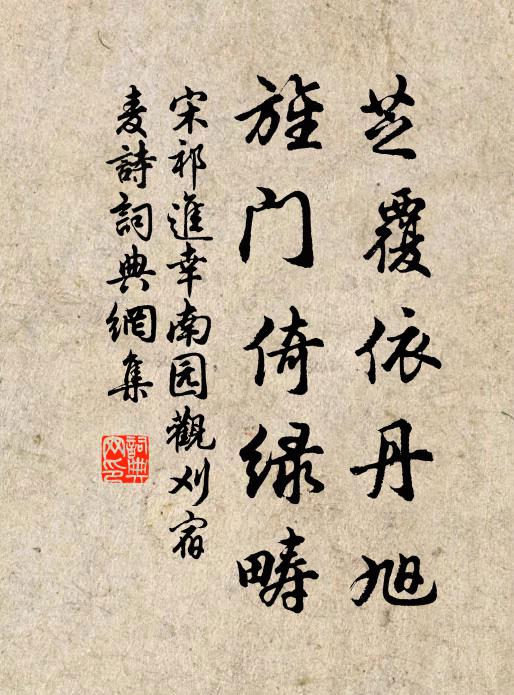 芝覆依丹旭
旌门倚绿畴
宋祁進幸南园觀刈宿
麦詩詞典網集
詞典网印